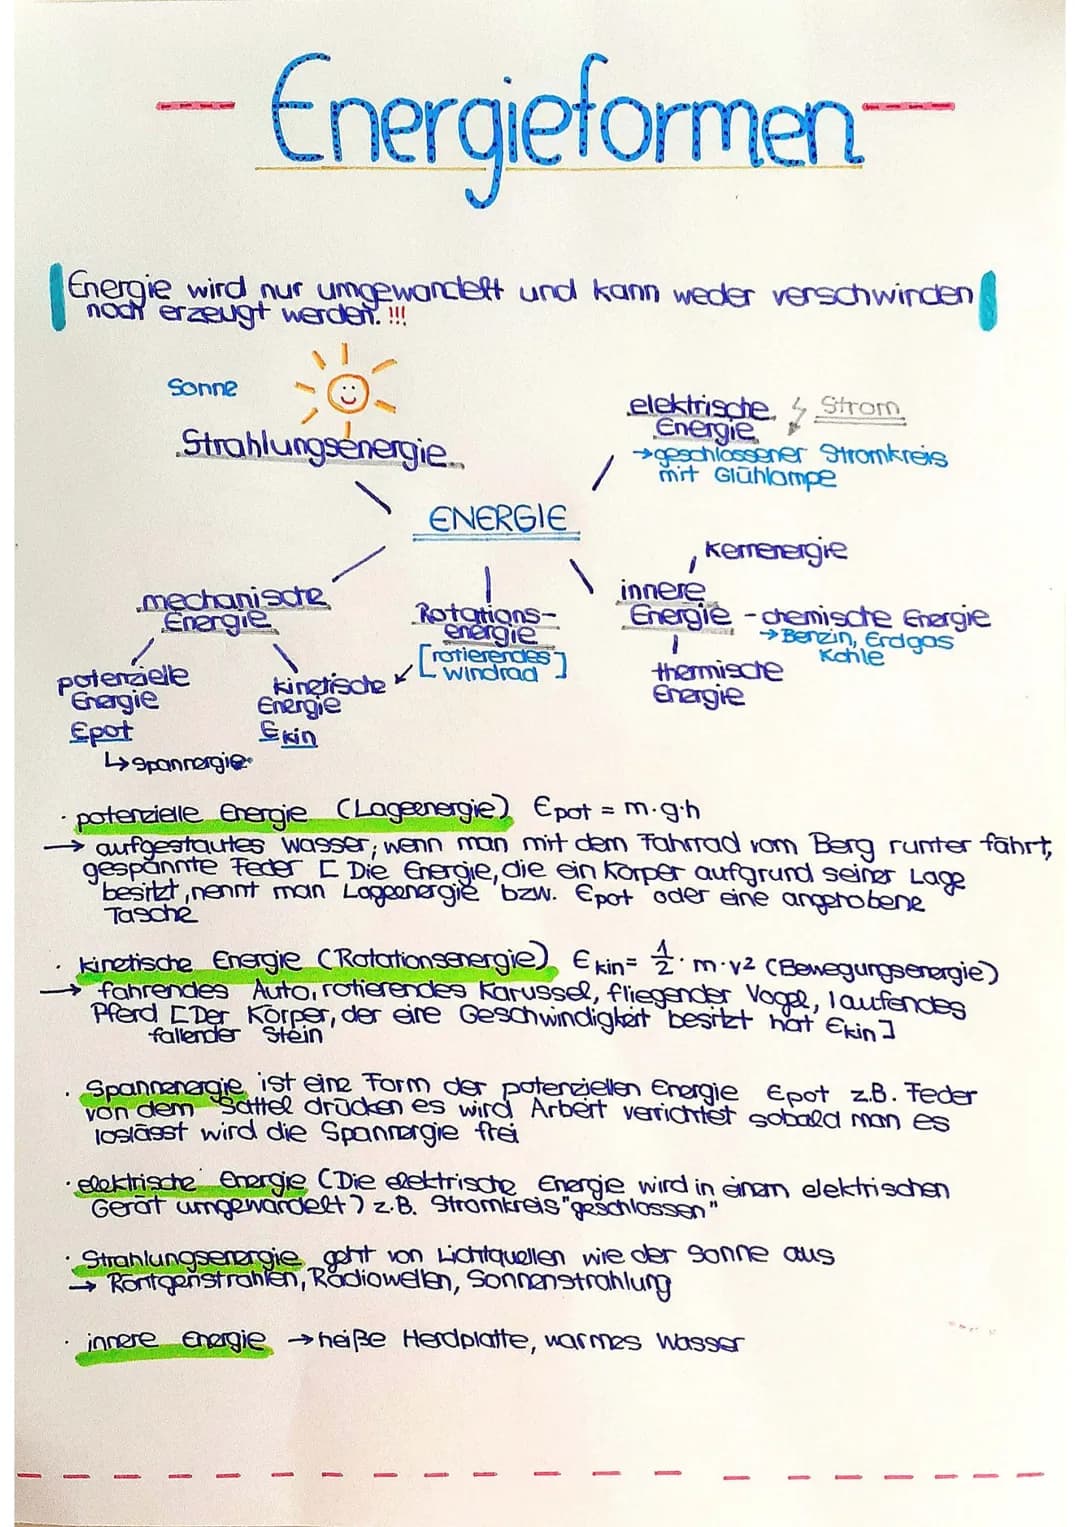 Energieformen
Energie wird nur umgewandelt und kann weder verschwinden
noch erzeugt werden. !!!
Sonne
Strahlungsenergie
elektrische Strom
Energie
→geschlossener Stromkreis
mit Glühlampe
ENERGIE
Kernenergie
innere
Energie - chemische Energie
→ Benzin, Erdgas
Kohle
thermische
Energie
mechanische
Energie
Rotations-
energie
[rotierendes
windrad]
potenzielle
Energie
Epot
↳ Spannergie
kinetische
Energie
Ekin
· potenzielle Energie (Lageenergie) Epot = m·g·h
→ aufgestautes Wasser, wenn man mit dem Fahrrad vom Berg runter fährt,
gespannte Feder [ Die Energie, die ein Körper aufgrund seiner Lage
besitzt, nennt man Lageenergie bzw. Epot oder eine angehobene
Tasche
· kinetische Energie (Rotationsenergie) Ekin = 1/2 · m·v² (Bewegungsenergie)
→ fahrendes Auto, rotierendes Karussel, fliegender Vogel, laufendes
Pferd [Der Körper, der eine Geschwindigkeit besitzt hat Ekin]
fallender Stein
· Spannenergie ist eine Form der potenziellen Energie Epot z.B. Feder
von dem Sattel drücken es wird Arbeit verrichtet sobald man es
loslässt wird die Spannergie frei
· elektrische Energie (Die elektrische Energie wird in einem elektrischen
Gerät umgewandelt) z.B. Stromkreis "geschlossen"
· Strahlungsenergie geht von Lichtquellen wie der Sonne aus
→ Röntgenstrahlen, Radiowellen, Sonnenstrahlung
· innere Energie → heiße Herdplatte, warmes Wasser